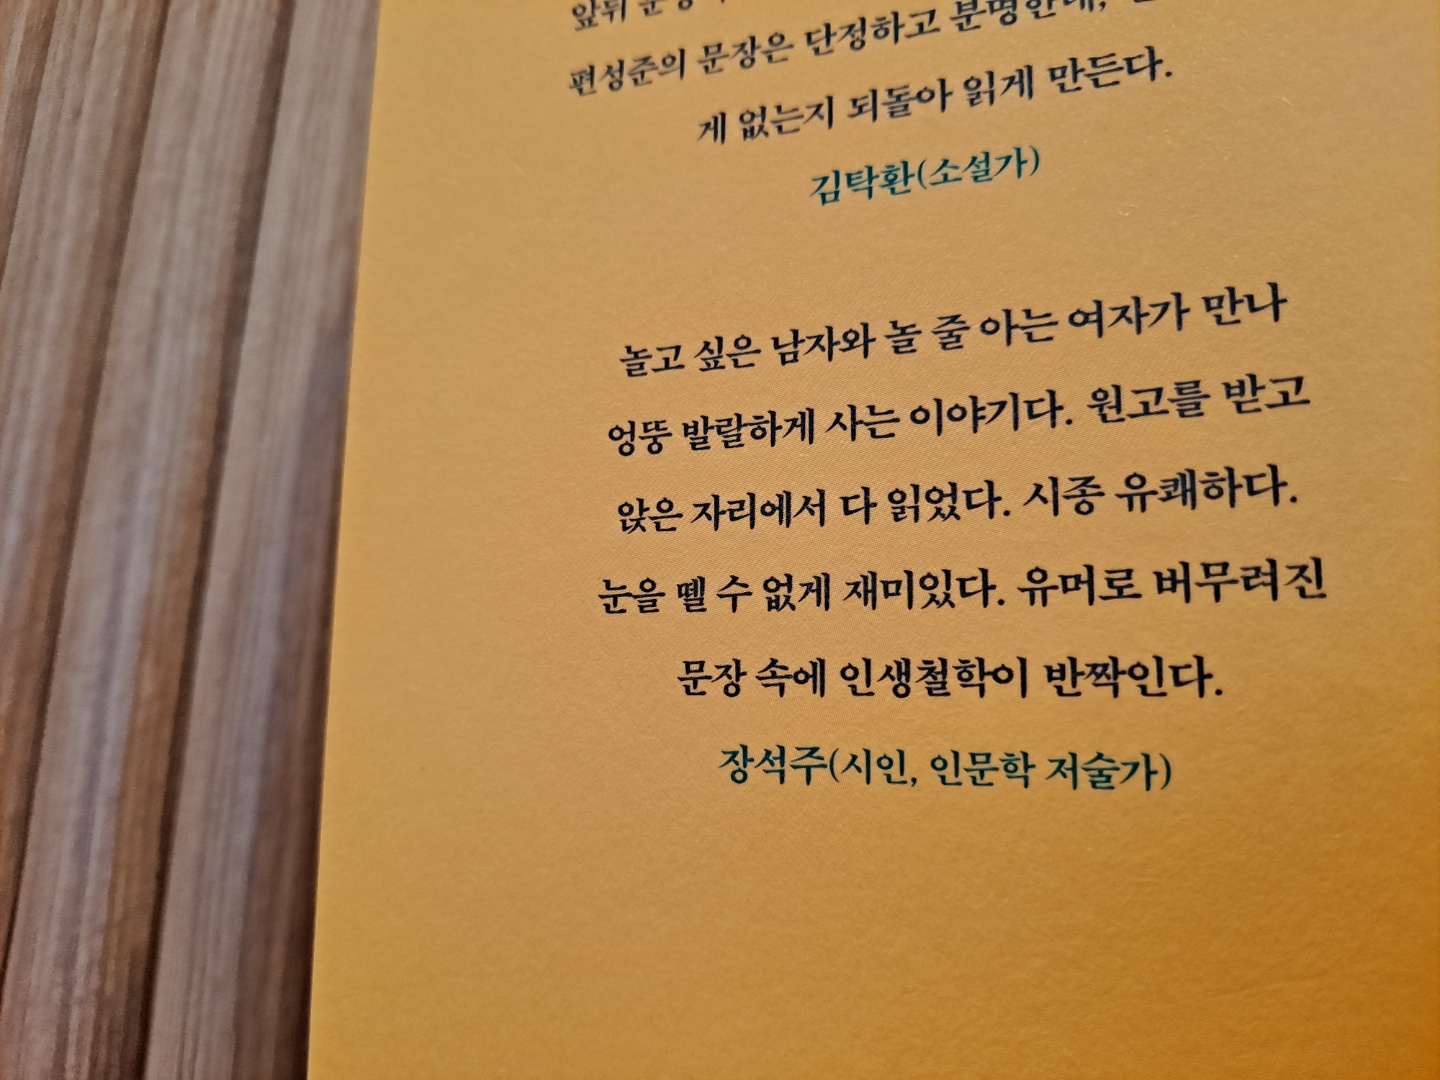 앞뒤
편성준의 문장은 단정하고 분명한데,
게 없는지 되돌아 읽게 만든다.
김탁환(소설가)
놀고 싶은 남자와 놀 줄 아는 여자가 만나
엉뚱 발랄하게 사는 이야기다. 원고를 받고
앉은 자리에서 다 읽었다. 시종 유쾌하다.
눈을 뗄 수 없게 재미있다. 유머로 버무려진
문장 속에 인생철학이 반짝인다.
장석주(시인, 인문학 저술가)